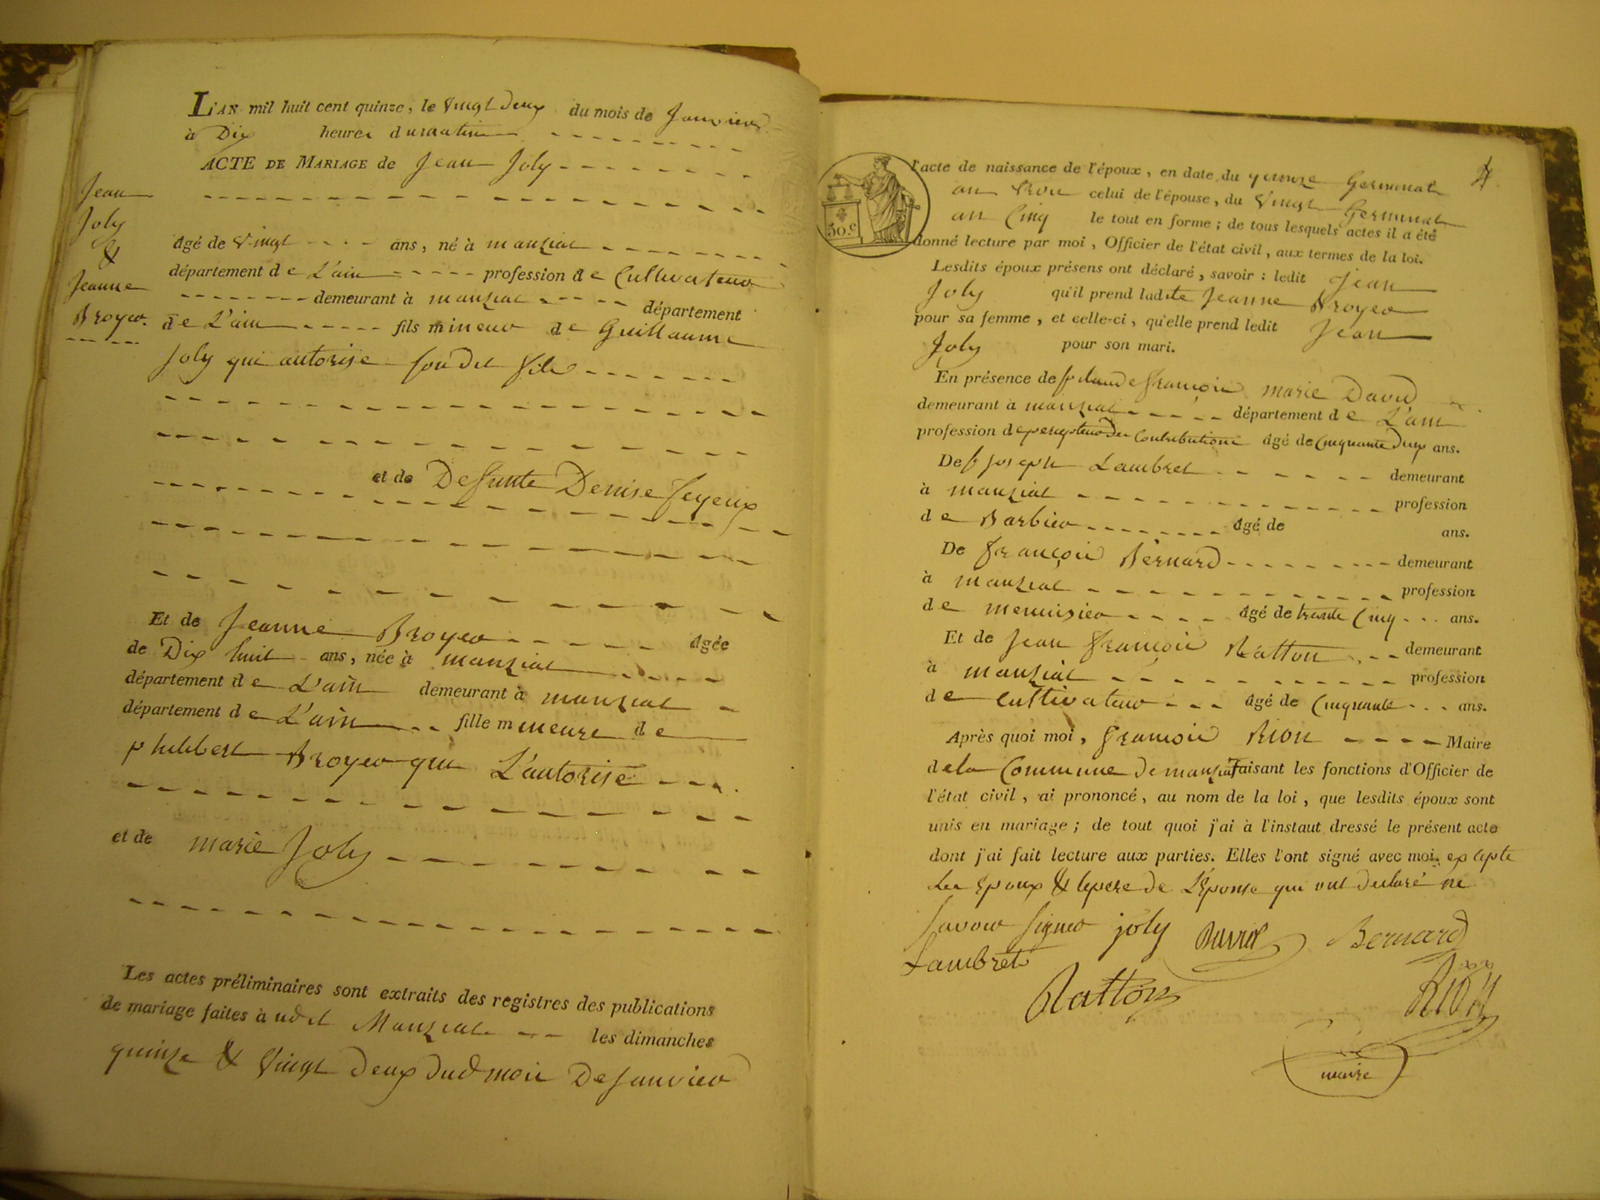 L'AN mil huit cent quinze, le vingt deux du mois de Janvier
à Dix heures du matin
ACTE DE MARIAGE de Jean Joly
Jean
Joly
&
Jeanne
Broyer
âgé de vingt ans, né à manziat
département de L'ain profession de Cultivateur
demeurant à manziat département
de L'ain fils mineur de Guillaume
Joly qui autorise son dit fils
et de Defunte Denise feyeux
Et de Jeanne Broyer âgée
de Dix huit ans, née à manziat
département de L'ain demeurant à manziat
département de L'ain fille mineure de
philibert Broyer qui L'autorise
et de marie Joly
Les actes préliminaires sont extraits des registres des publications
de mariage faites à udit Manziat les dimanches
quinze & vingt deux dud mois De Janvier
30.c
l'acte de naissance de l'époux, en date du quinze Germinal
an trois celui de l'épouse, du vingt Germinal
an Cinq le tout en forme; de tous lesquels actes il a été
donné lecture par moi, Officier de l'état civil, aux termes de la loi.
Lesdits époux présens ont déclaré, savoir: ledit Jean
Joly qu'il prend ladite Jeanne Broyer
pour sa femme, et celle-ci, qu'elle prend ledit Jean
Joly pour son mari.
En présence de françois marie David
demeurant à manziat département de L'ain
profession de percepteur Des Contributions âgé de Cinquante Deux ans.
De joseph Lambret demeurant
à manziat profession
de Barbier âgé de ans.
De françois Bernard demeurant
à manziat profession
de menuisier âgé de trente Cinq ans.
Et de Jean françois Ratton demeurant
à manziat profession
de cultivateur âgé de Cinquante ans.
Après quoi moi, françois Rion Maire
de la Commune De manziat faisant les fonctions d'Officier de
l'état civil, ai prononcé, au nom de la loi, que lesdits époux sont
unis en mariage; de tout quoi j'ai à l'instaut dressé le présent acte
dont j'ai fait lecture aux parties. Elles l'ont signé avec moi, excepte
les époux & le pere de L'Epouse qui ont declaré ne
savoir signer joly David Bernard
Lambret
Ratton Rion
maire